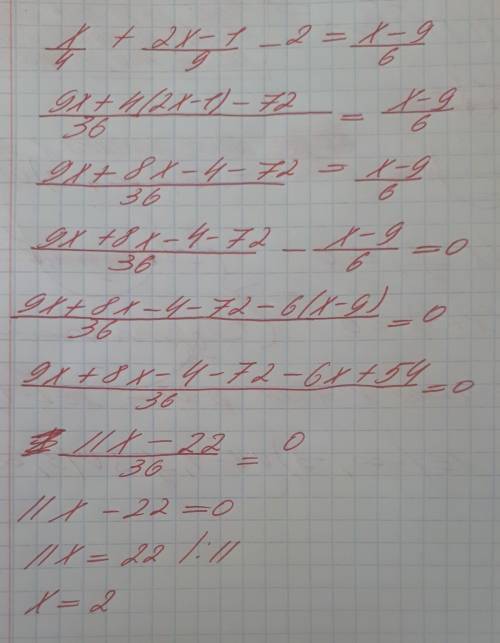 x/4 + 2x-1/9 - 2 = x-9/6
9x+4(2x-1)-72/36 = x-9/6
9x+8x-4-72/36 = x-9/6
9x+8x-4-72/36 - x-9/6 = 0
9x+8x-4-72-6(x-9)/36 = 0
9x+8x-4-72-6x+54/36 = 0
11x-22/36 = 0
11x-22=0
11x=22 /:11
x=2